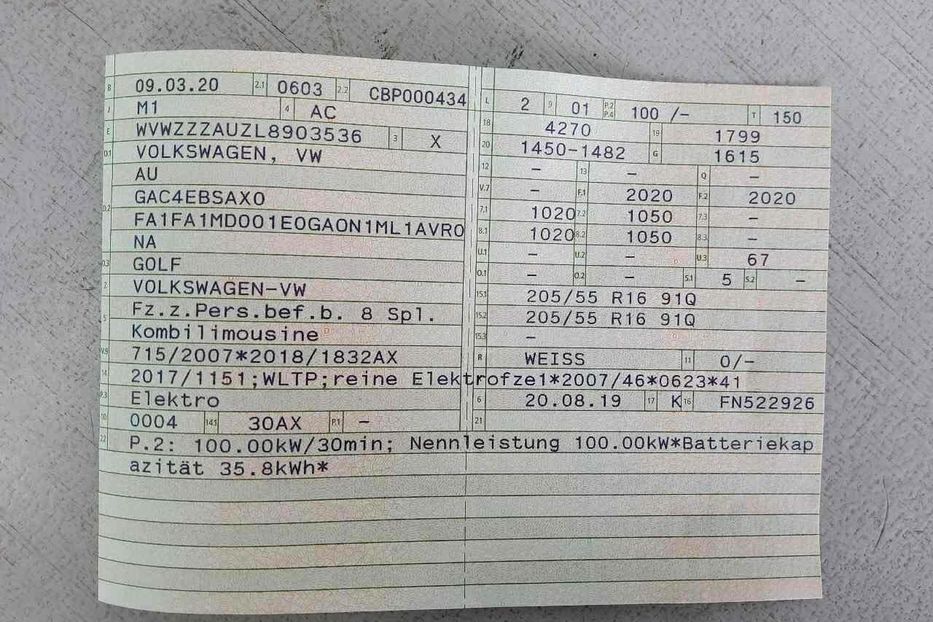 B 09.03.20 2.1 0603 2.2 CBP000434
J M1 4 AC
E WVWZZZAUZL8903536 3 X
D.1 VOLKSWAGEN, VW
AU
D.2 GAC4EBSAX0
FA1FA1MD001E0GA0N1ML1AVR0
NA
D.3 GOLF
2 VOLKSWAGEN-VW
5 Fz.z.Pers.bef.b. 8 Spl.
Kombilimousine
V.9 715/2007*2018/1832AX
14 2017/1151;WLTP;reine Elektrofze1*2007/46*0623*41
P.3 Elektro
10 0004 14.1 30AX P.1 -
22 P.2: 100.00kW/30min; Nennleistung 100.00kW*Batteriekap
azität 35.8kWh*
L 2 9 01 P.2 P.4 100 /- T 150
18 4270 19 1799
20 1450-1482 G 1615
12 - 13 - Q -
V.7 - F.1 2020 F.2 2020
7.1 1020 7.2 1050 7.3 -
8.1 1020 8.2 1050 8.3 -
U.1 - U.2 - U.3 67
O.1 - O.2 - S.1 5 S.2 -
15.1 205/55 R16 91Q
15.2 205/55 R16 91Q
15.3 -
R WEISS 11 0/-
6 20.08.19 17 K 16 FN522926
21